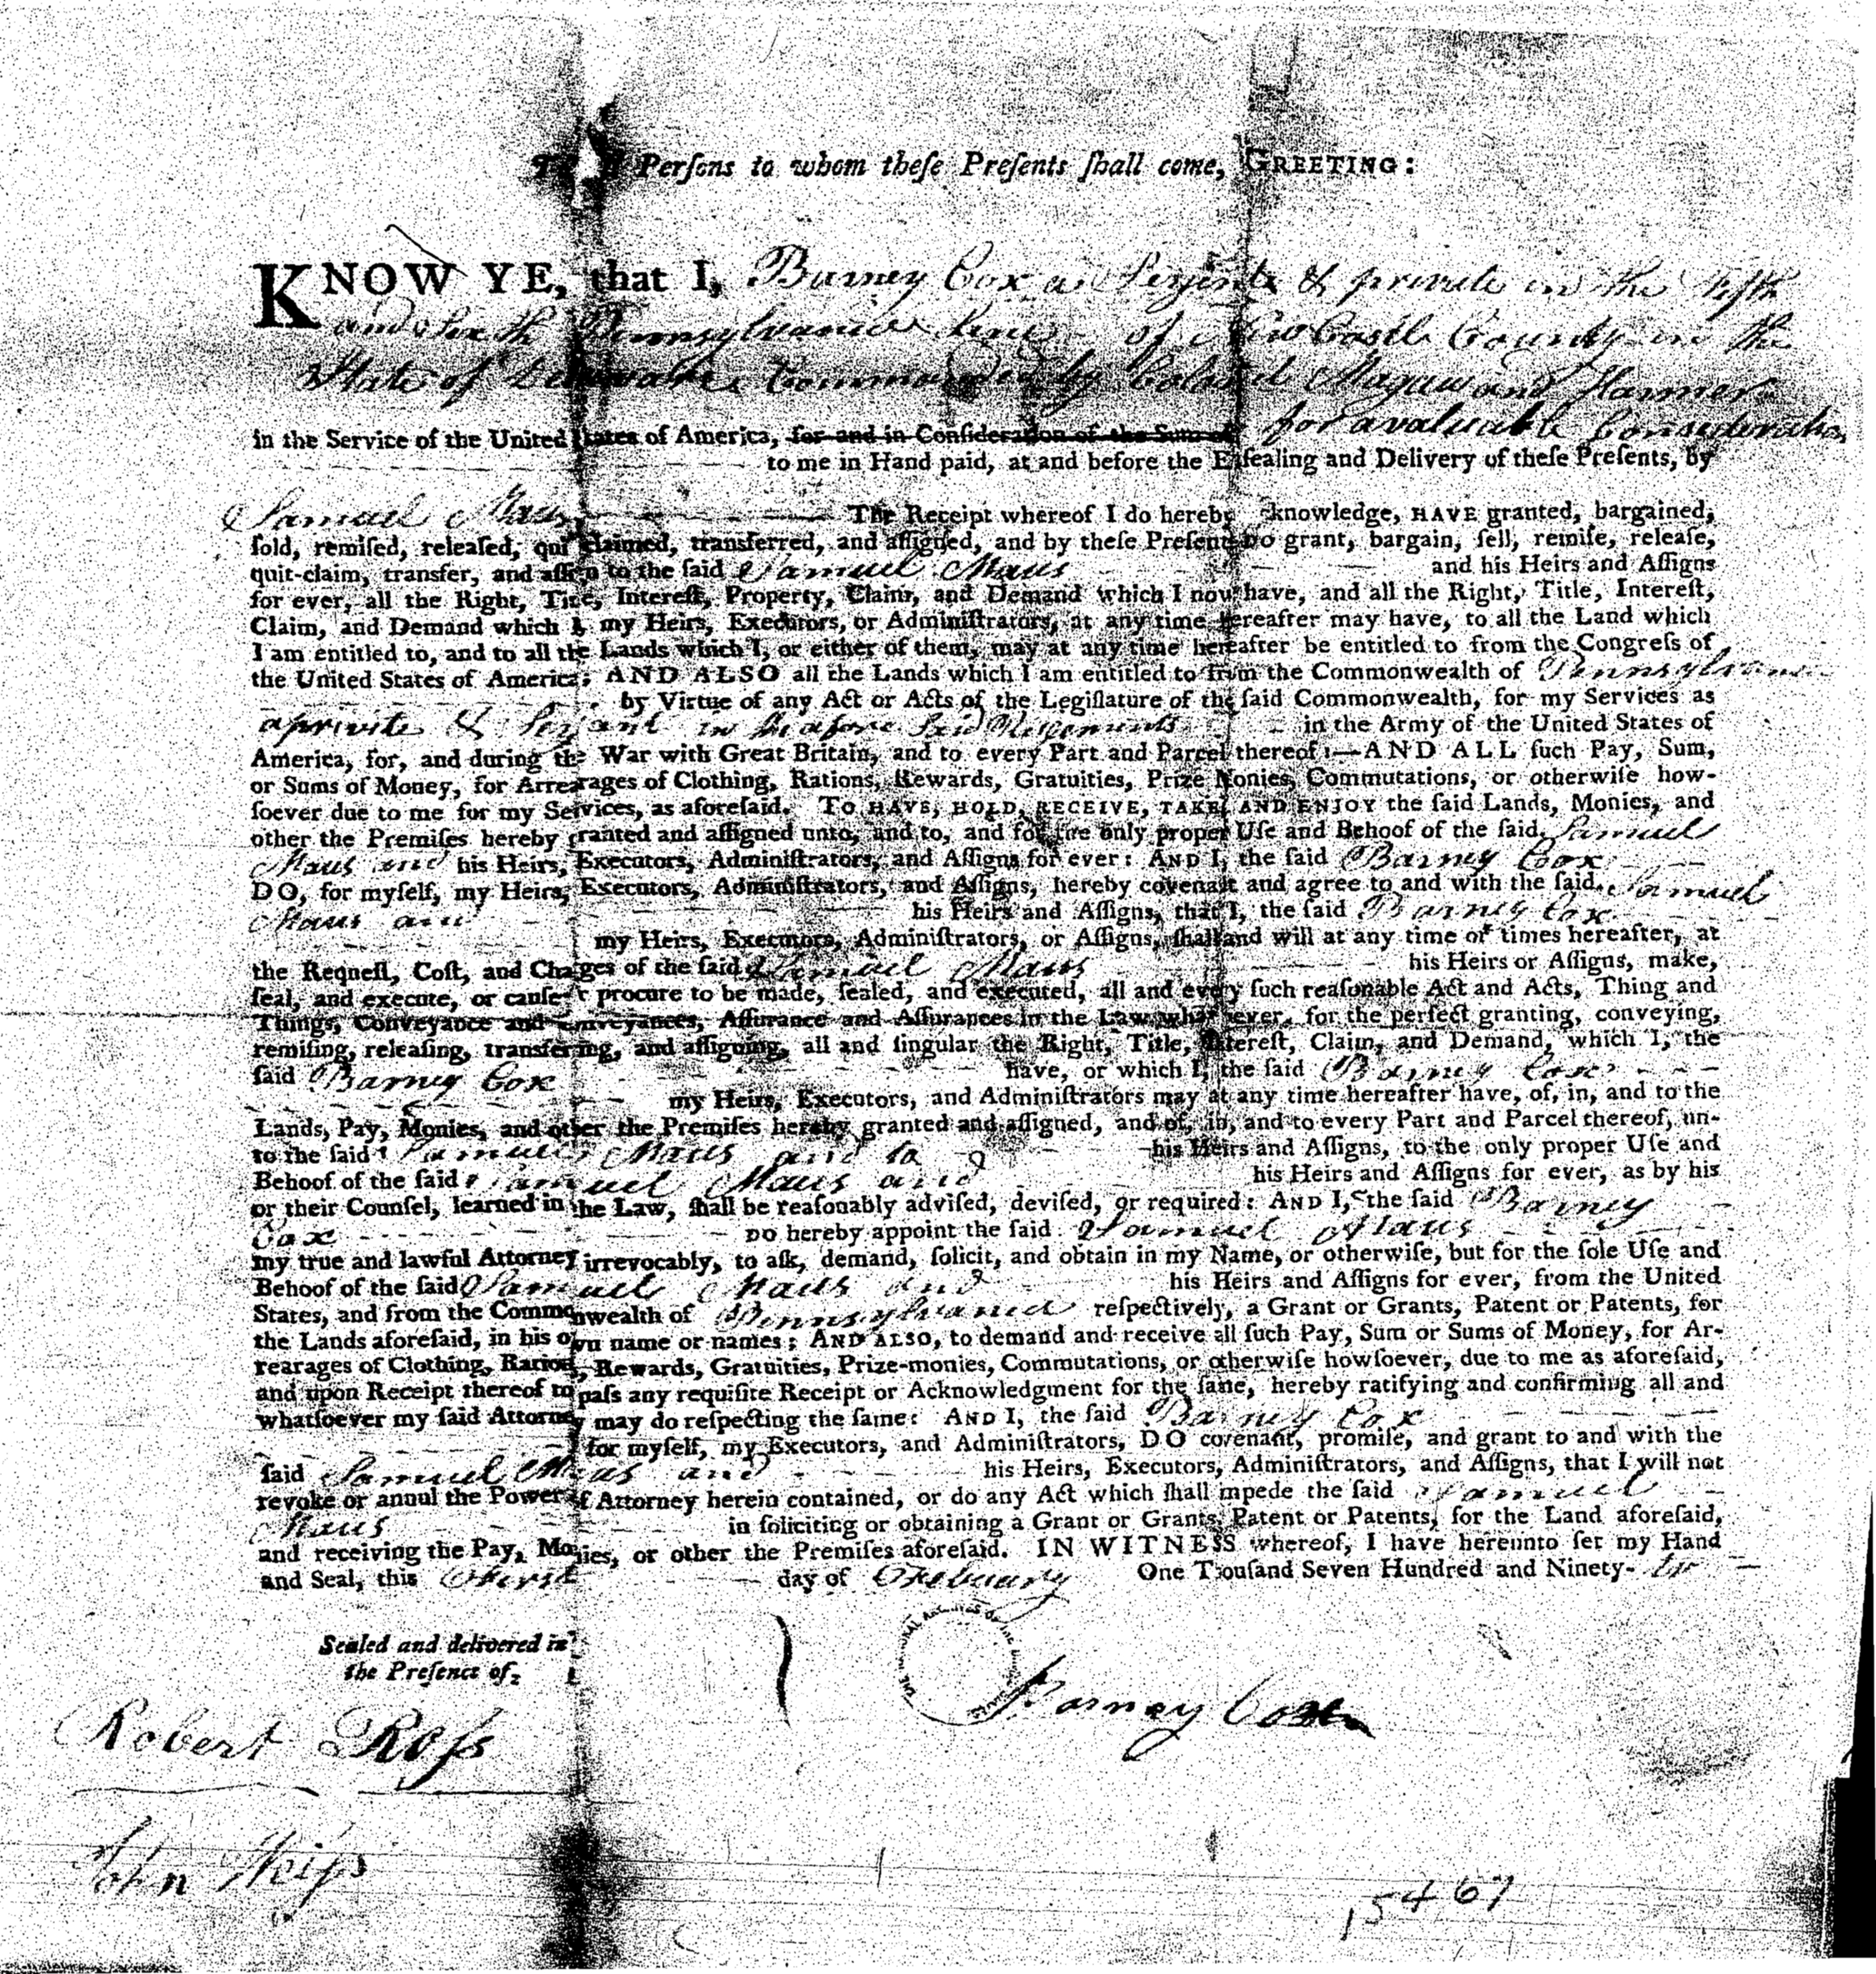 Persons to whom theſe Preſents ſhall come, GREETING:
KNOW YE, that I, Barney Cox a Serjent & private in the Fifth
and Sixth Pennsylvania Line of New Castle County in the
State of Delaware Commanded by Colonel Magaw and Harmer
for a valuable Consideration
in the Service of the United States of America, for and in Conſideration of the Sum of
to me in Hand paid, at and before the Enſealing and Delivery of theſe Preſents, by
Samuel Maus The Receipt whereof I do hereby acknowledge, HAVE granted, bargained,
ſold, remiſed, releaſed, quit-claimed, transferred, and aſſigned, and by theſe Preſents Do grant, bargain, ſell, remiſe, releaſe,
quit-claim, transfer, and aſſign to the ſaid Samuel Maus and his Heirs and Aſſigns
for ever, all the Right, Title, Intereſt, Property, Claim, and Demand which I now have, and all the Right, Title, Intereſt,
Claim, and Demand which I, my Heirs, Executors, or Adminiſtrators, at any time hereafter may have, to all the Land which
I am entitled to, and to all the Lands which I, or either of them, may at any time hereafter be entitled to from the Congreſs of
the United States of America; AND ALSO all the Lands which I am entitled to from the Commonwealth of Pennsylvania
by Virtue of any Act or Acts of the Legiſlature of the ſaid Commonwealth, for my Services as
a private & Serjant in the afore Said Regements in the Army of the United States of
America, for, and during the War with Great Britain, and to every Part and Parcel thereof:—AND ALL ſuch Pay, Sum,
or Sums of Money, for Arrearages of Clothing, Rations, Rewards, Gratuities, Prize Monies, Commutations, or otherwiſe how-
ſoever due to me for my Services, as aforeſaid. TO HAVE, HOLD, RECEIVE, TAKE, AND ENJOY the ſaid Lands, Monies, and
other the Premiſes hereby granted and aſſigned unto, and to, and for the only proper Uſe and Behoof of the ſaid Samuel
Maus and his Heirs, Executors, Adminiſtrators, and Aſſigns for ever: AND I, the ſaid Barney Cox
DO, for myſelf, my Heirs, Executors, Adminiſtrators, and Aſſigns, hereby covenant and agree to and with the ſaid Samuel
Maus and his Heirs and Aſſigns, that I, the ſaid Barney Cox
my Heirs, Executors, Adminiſtrators, or Aſſigns, ſhall and will at any time or times hereafter, at
the Requeſt, Coſt, and Charges of the ſaid Samuel Maus his Heirs or Aſſigns, make,
ſeal, and execute, or cauſe or procure to be made, ſealed, and executed, all and every ſuch reaſonable Act and Acts, Thing and
Things, Conveyance and Conveyances, Aſſurance and Aſſurances in the Law whatſoever, for the perfect granting, conveying,
remiſing, releaſing, transferring, and aſſigning, all and ſingular the Right, Title, Intereſt, Claim, and Demand, which I, the
ſaid Barney Cox have, or which I, the ſaid Barney Cox
my Heirs, Executors, and Adminiſtrators may at any time hereafter have, of, in, and to the
Lands, Pay, Monies, and other the Premiſes hereby granted and aſſigned, and of, in, and to every Part and Parcel thereof, un-
to the ſaid Samuel Maus and to his Heirs and Aſſigns, to the only proper Uſe and
Behoof of the ſaid Samuel Maus and his Heirs and Aſſigns for ever, as by his
or their Counſel, learned in the Law, ſhall be reaſonably adviſed, deviſed, or required: AND I, the ſaid Barney
Cox DO hereby appoint the ſaid Samuel Maus
my true and lawful Attorney irrevocably, to aſk, demand, ſolicit, and obtain in my Name, or otherwiſe, but for the ſole Uſe and
Behoof of the ſaid Samuel Maus and his Heirs and Aſſigns for ever, from the United
States, and from the Commonwealth of Pennsylvania reſpectively, a Grant or Grants, Patent or Patents, for
the Lands aforeſaid, in his own name or names; AND ALSO, to demand and receive all ſuch Pay, Sum or Sums of Money, for Ar-
rearages of Clothing, Rations, Rewards, Gratuities, Prize-monies, Commutations, or otherwiſe howſoever, due to me as aforeſaid,
and upon Receipt thereof to paſs any requiſite Receipt or Acknowledgment for the ſame, hereby ratifying and confirming all and
whatſoever my ſaid Attorney may do reſpecting the ſame: AND I, the ſaid Barney Cox
for myſelf, my Executors, and Adminiſtrators, DO covenant, promiſe, and grant to and with the
ſaid Samuel Maus and his Heirs, Executors, Adminiſtrators, and Aſſigns, that I will not
revoke or annul the Power of Attorney herein contained, or do any Act which ſhall impede the ſaid Samuel
Maus in ſoliciting or obtaining a Grant or Grants, Patent or Patents, for the Land aforeſaid,
and receiving the Pay, Monies, or other the Premiſes aforeſaid. IN WITNESS whereof, I have hereunto ſet my Hand
and Seal, this day of Febuary One Thouſand Seven Hundred and Ninety-
Sealed and delivered in
the Preſence of
Barney Cox
Robert Roſs
John
15467